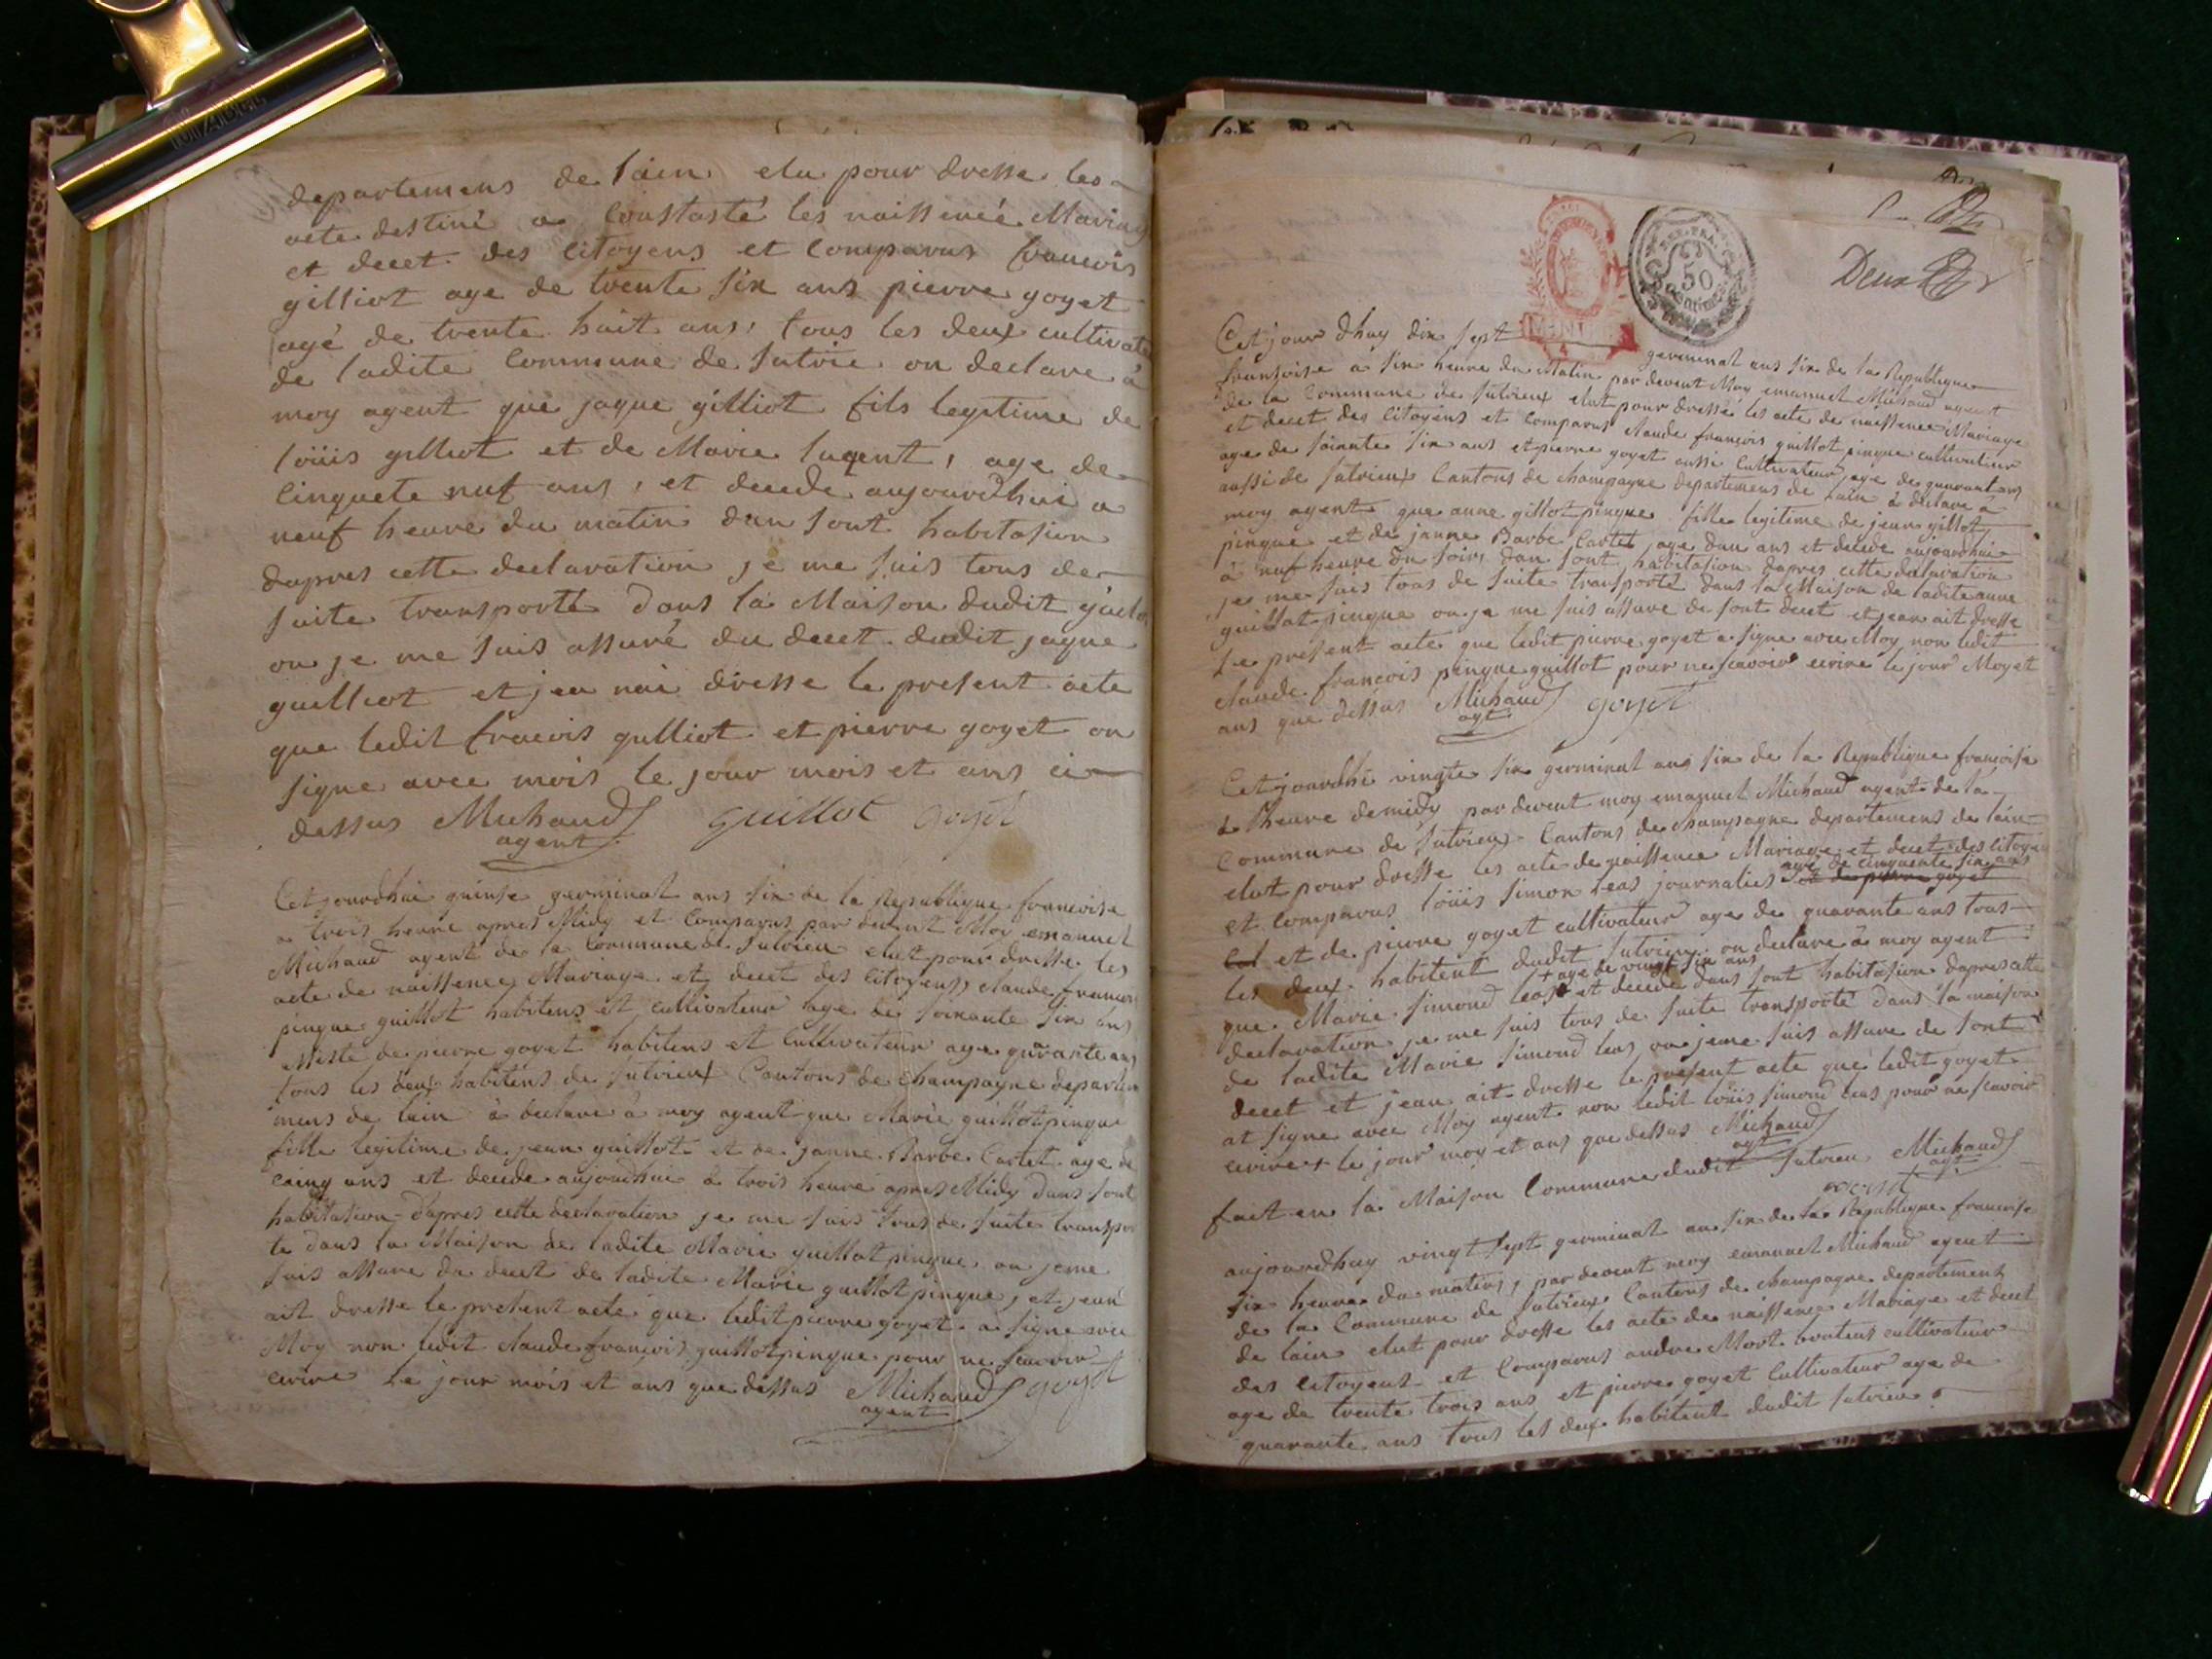 departemens de lain elu pour dresse les
acte destiné a Constasté les naissence Mariag
et decet des citoyens et Comparus francois
gilliot age de trente six ans pierre goyet
agé de trente huit ans, tous les deux cultivate
de ladite Commune de Sutrie on declare à
moy agent que jaque gilliot fils legitime de
loüis gilliot et de Marie lugent, age de
Cinquete nuf ans, et decede aujourdhui a
neuf heure du matin dan sont habitasion
dapres cette declaration je me suis tous de
suite transporté dans la Maison dudit
ou je me suis assuré du decet dudit jaque
guilliot et jen nai dresse le present acte
que ledit fracois gulliot et pierre goyet on
signe avec mois le jour mois et ans ci
dessus Michaud guillot goyet
agent
Cet jourdhui quinse germinat ans six de la Republique francoise
a trois heure apres Midy et Comparus par devent Moy emanuel
Michaud agent de la Commune de Sutrieu elut pour dresse les
acte de naissence Mariage et decet des citoyens claude francois
pinque guillot habitens et cultivateur age de soixante six ans
de pierre goyet habitens et Cultivateur age quarante ans
tous les deux habitens de Sutrieux Cantons de Champagne departe
mens de lain à declare à moy agent que Marie guillot pinque
fille legitime de jean guillot et de janne Barbe Cartet age de
cainq ans et decede aujourdhui à trois heure apres Midy dans sont
habitasion dapres cette declaration je me suis tous de suite transpor
te dans la Maison de ladite Marie guillot pinque ou jeme
suis assure du decet de ladite Marie guillot pinque, et jean
ait dresse le present acte que ledit pierre goyet a signe avec
Moy non ledit claude francois guillot pinque pour ne scavoir
écrire Le jour mois et ans que dessus Michaud goyet
agent
Deux
REP. FRA.
50
Centimes
Cet jour dhuy dix sept germinat ans six de la Republique
françoise a six heure du Matin par devent Moy emanuel Michaud agent
de la Commune de Sutrieux elut pour dresse les acte de naissence Mariage
et decet des Citoyens et Comparus claude françois guillot pinque cultivateur
age de soixante six ans et pierre goyet aussi Cultivateur age de quarant ans
aussi de Sutrieux Cantons de Champagne departemens de Lain à declare à
moy agent que anne gillot pinque fille legitime de jean gillot
pinque et de janne Barbe Cartet, age dun ans et decede aujourdhui
à nuf heure du soir, dan sont habitation dapres cette declaration
je me suis tous de suite transporté dans la Maison de ladite anne
guillot pinque ou je me suis assure de sont decet et jean ait dresse
Le present acte que ledit pierre goyet a signe avec Moy non ledit
claude francois pinque guillot pour ne scavoir ecrire le jour Moy et
ans que dessus Michaud goyet
agt
Cet jourdhi vingte six germinat ans six de la Republique francoise
à heure demidy par devent moy emanuel Michaud agent de la
Commune de Sutrieux Cantons de Champagne departemens de lain
elut pour dresse les acte de naissence Mariage et decet des citoyen
et Comparus loüis Simon Leas journalies age de cinquente six ans et de pierre goyet
et de pierre goyet cultivateur age de quarante ans tous
les deux habitent dudit Sutrieux on declare à moy agent
que Marie Simond leas + age de vingt six ans et decede dans sont habitasion dapres cette
declaration je me suis tous de suite transporté dans la maison
de ladite Marie Simond leas ou jeme suis assure de sont
decet et jean ait dresse le present acte que ledit goyet
at signe avec Moy agent non ledit loüis Simond leas pour ne scavoir
ecrire + le jour moy et ans que dessus Michaud
agt
fait en la Maison Commune dudit Sutrieu Michaud
agt
goyet
aujourdhuy vingt sept germinat an six de la Republique francoise
six heure du matin, par devent moy emanuel Michaud agent
de la Commune de Sutrieux Cantons de Champagne departement
de lain elut pour dresse les acte de naissence Mariage et decet
des Citoyent et Comparus andre Mort cultivateur
age de trente trois ans et pierre goyet Cultivateur age de
quarante ans tous les deux habitent dudit Sutrieu